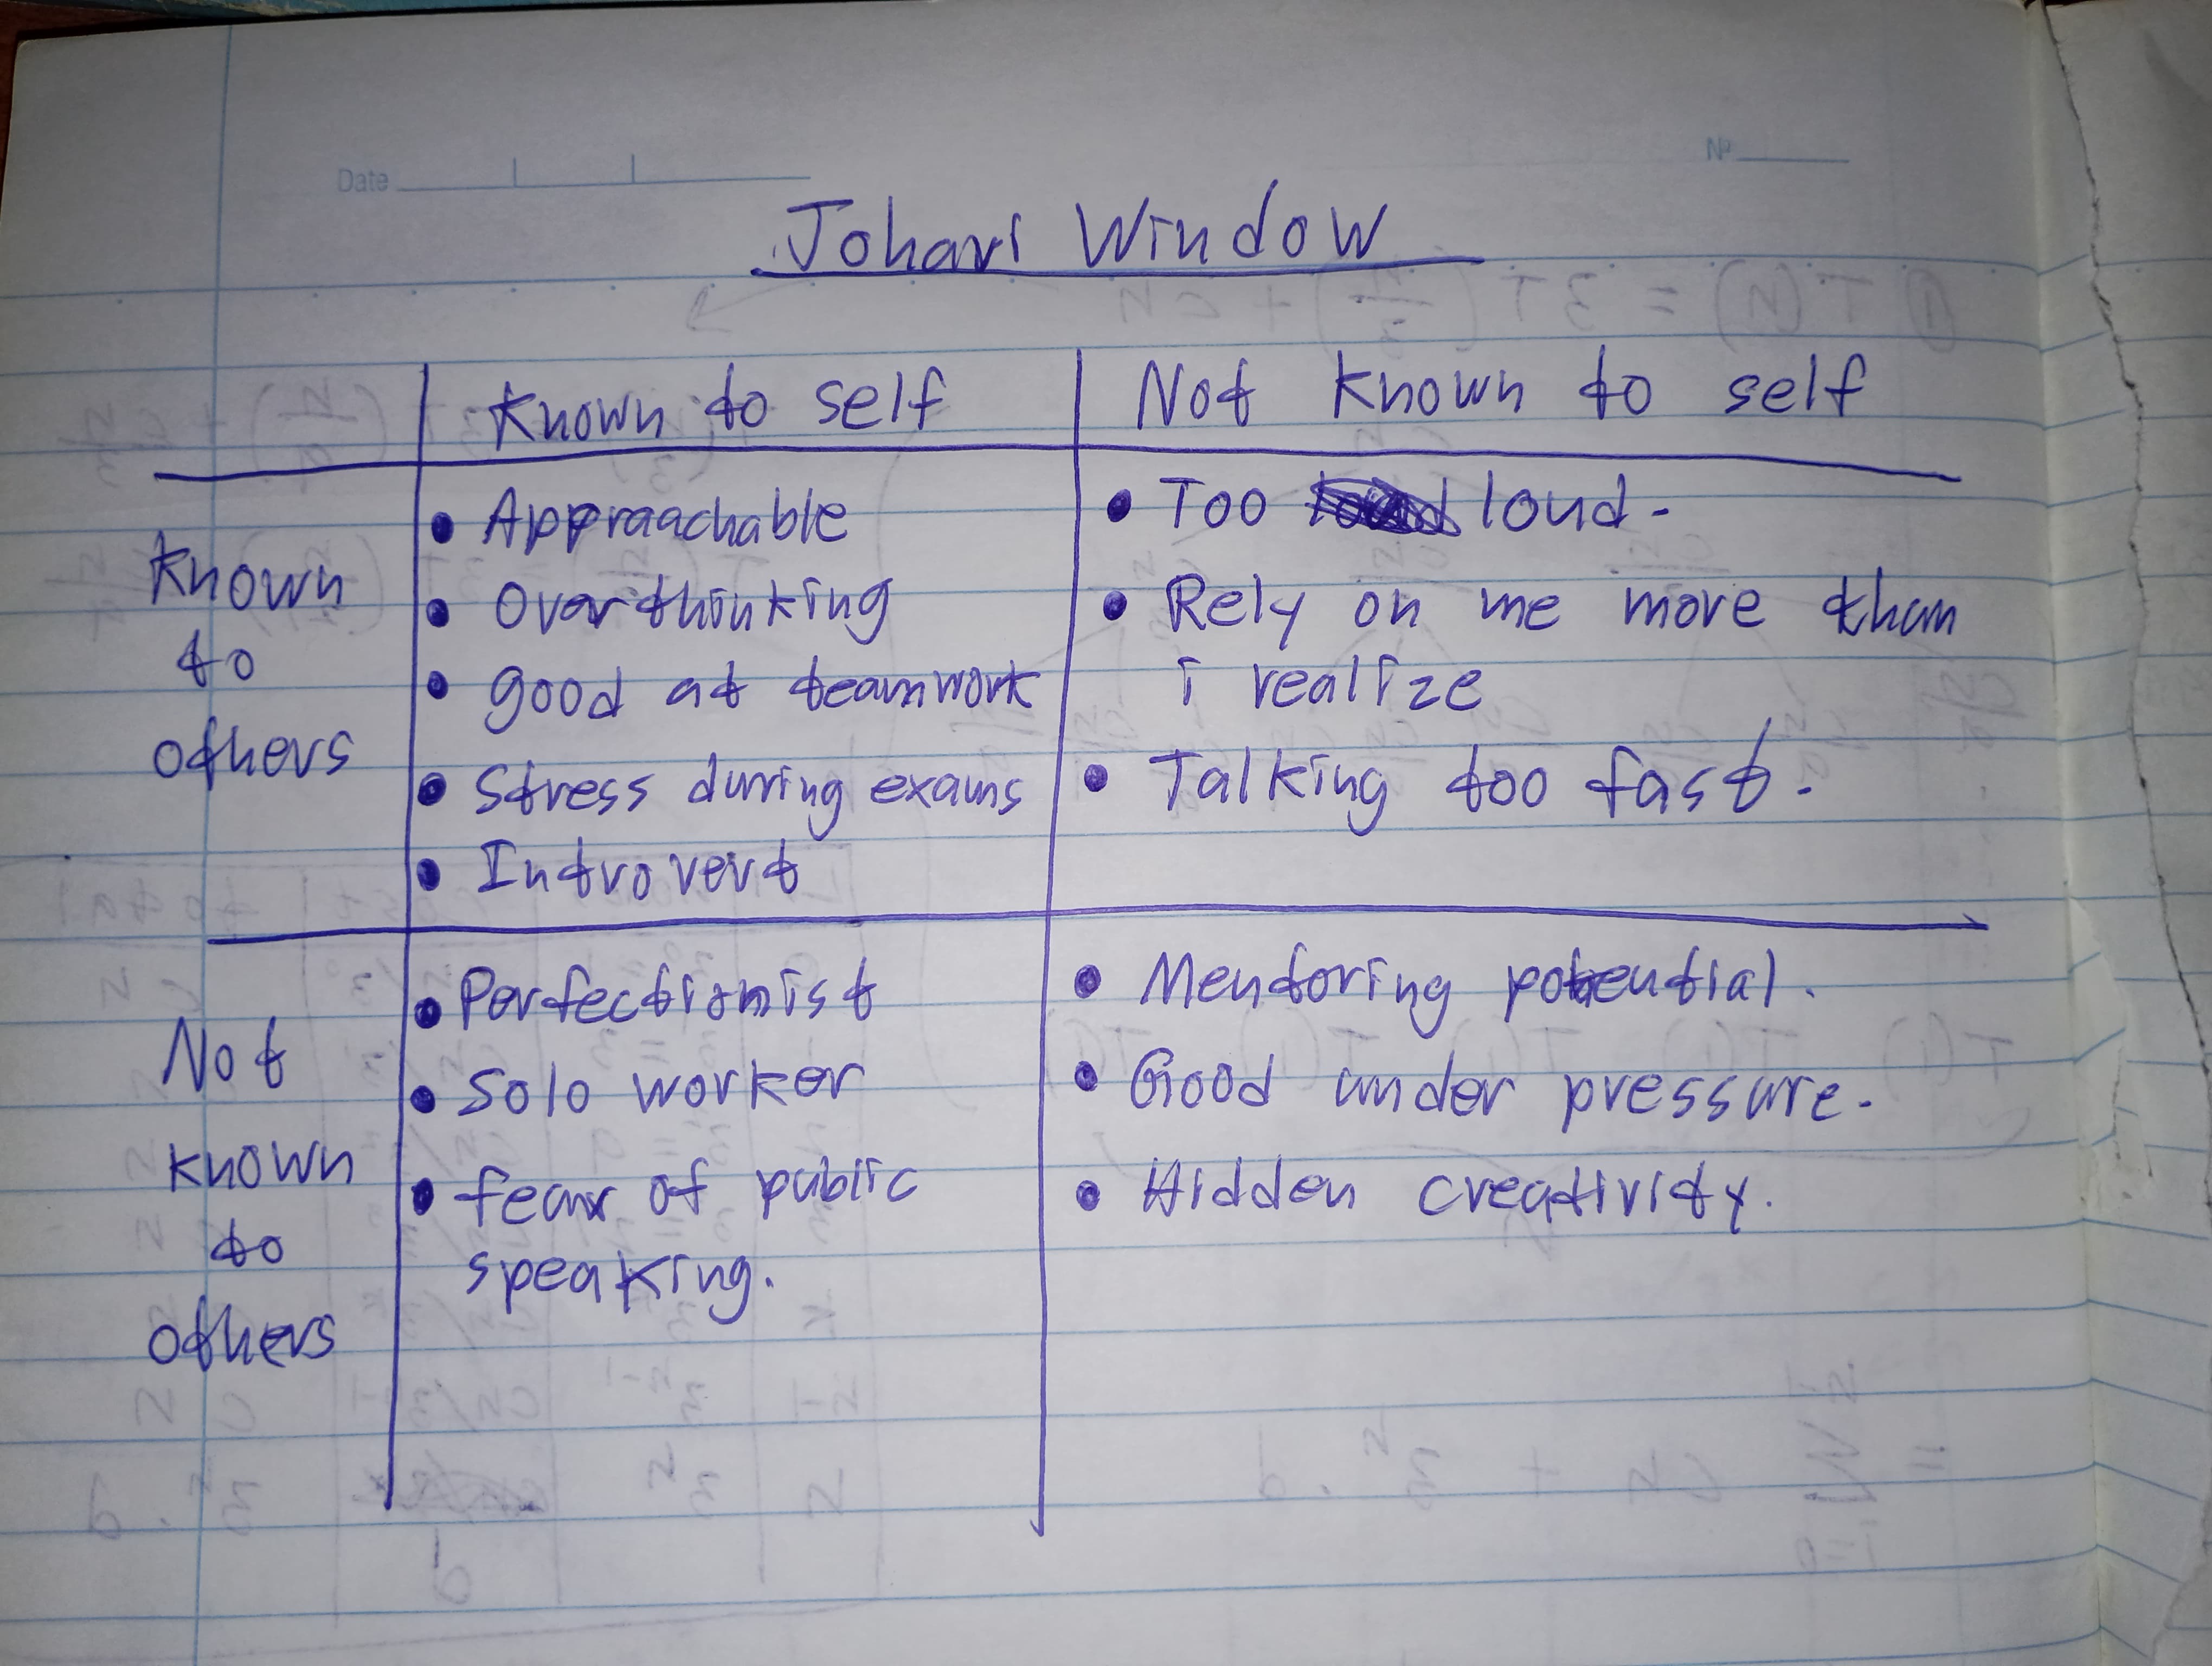 Date
Nº
Johari Window
Known to self
Not known to self
Known
to
others
• Appraachable
• Overthinking
• good at teamwork
• Stress during exams
• Introvert
• Too loud.
• Rely on me more than
i realize
• Talking too fast.
Not
known
to
others
• Perfectionist
• Solo worker
• fear of public
speaking.
• Mentoring potential.
• Good under pressure.
• Hidden creativity.